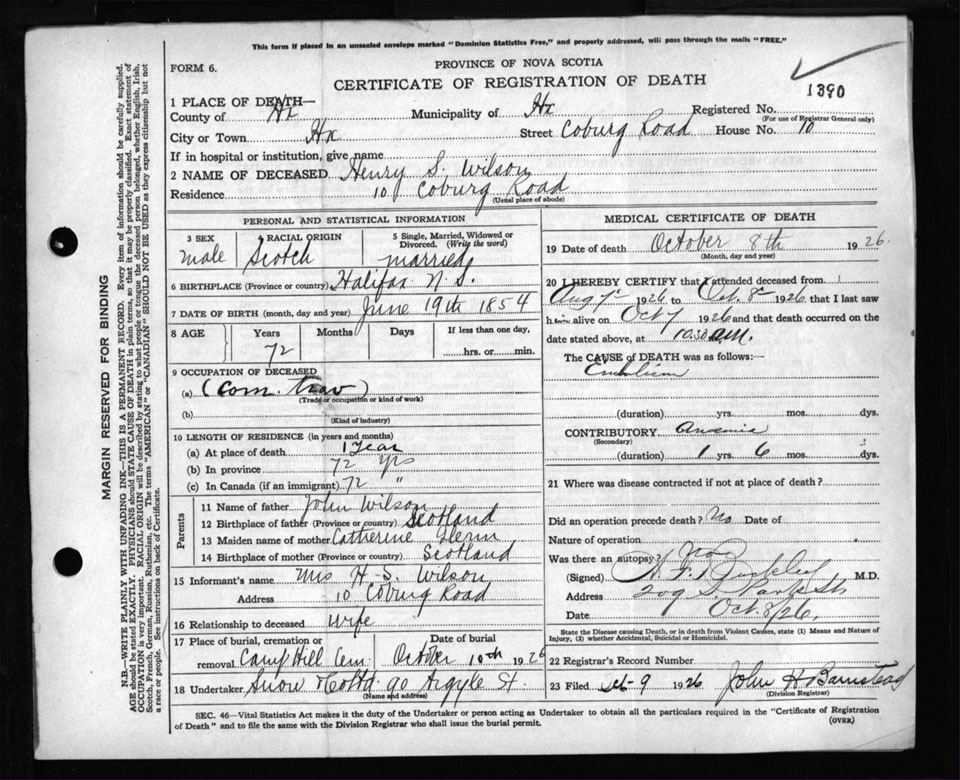 This form if placed in an unsealed envelope marked "Dominion Statistics Free," and properly addressed, will pass through the mails "FREE."
FORM 6.
PROVINCE OF NOVA SCOTIA
CERTIFICATE OF REGISTRATION OF DEATH
1390
1 PLACE OF DEATH—
County of Hx Municipality of Hx Registered No.
(For use of Registrar General only)
City or Town Hx Street Coburg Road House No. 10
If in hospital or institution, give name
2 NAME OF DECEASED Henry S. Wilson
Residence 10 Coburg Road
(Usual place of abode)
PERSONAL AND STATISTICAL INFORMATION
3 SEX male
RACIAL ORIGIN Scotch
5 Single, Married, Widowed or Divorced. (Write the word) married
6 BIRTHPLACE (Province or country) Halifax N.S.
7 DATE OF BIRTH (month, day and year) June 19th 1854
8 AGE Years 72 Months Days If less than one day, hrs. or min.
9 OCCUPATION OF DECEASED
(a) (Com. Trav)
(Trade or occupation or kind of work)
(b)
(Kind of industry)
10 LENGTH OF RESIDENCE (in years and months)
(a) At place of death 1 Year
(b) In province 72 Yrs
(c) In Canada (if an immigrant) 72 "
Parents
11 Name of father John Wilson
12 Birthplace of father (Province or country) Scotland
13 Maiden name of mother Catherine
14 Birthplace of mother (Province or country) Scotland
15 Informant's name Mrs H. S. Wilson
Address 10 Coburg Road
16 Relationship to deceased wife
17 Place of burial, cremation or removal Camp Hill Cem Date of burial October 10th 1926
18 Undertaker Snow & Co Ltd 90 Argyle St.
(Name and address)
MEDICAL CERTIFICATE OF DEATH
19 Date of death October 8th 1926
(Month, day and year)
20 I HEREBY CERTIFY that I attended deceased from
Aug 7 1926 to Oct. 8 1926 that I last saw
him alive on Oct 7 1926 and that death occurred on the
date stated above, at 10.30 am.
The CAUSE of DEATH was as follows:
Embolism
(duration) yrs. mos. dys.
CONTRIBUTORY Anæmia
(Secondary)
(duration) 1 yrs. 6 mos. dys.
21 Where was disease contracted if not at place of death?
Did an operation precede death? No Date of
Nature of operation
Was there an autopsy? No
(Signed) M.D.
Address 209 S. Park St
Date Oct. 8/26.
State the Disease causing Death, or in death from Violent Causes, state (1) Means and Nature of Injury, (2) whether Accidental, Suicidal or Homicidal.
22 Registrar's Record Number
23 Filed Oct-9 1926 John H Barnstead
(Division Registrar)
SEC. 46—Vital Statistics Act makes it the duty of the Undertaker or person acting as Undertaker to obtain all the particulars required in the "Certificate of Registration
of Death" and to file the same with the Division Registrar who shall issue the burial permit.
(OVER)
MARGIN RESERVED FOR BINDING
N.B.—WRITE PLAINLY WITH UNFADING INK—THIS IS A PERMANENT RECORD. Every item of information should be carefully supplied.
AGE should be stated EXACTLY. PHYSICIANS should STATE CAUSE OF DEATH in plain terms, so that it may be properly classified. Exact statement of
OCCUPATION is very important. RACIAL ORIGIN will be described by stating to what people or tongue the deceased person belonged, whether English, Irish,
Scotch, French, German, Russian, Ruthenian, etc. The terms "AMERICAN" or "CANADIAN" SHOULD NOT BE USED as they express citizenship but not
a race or people. See instructions on back of Certificate.